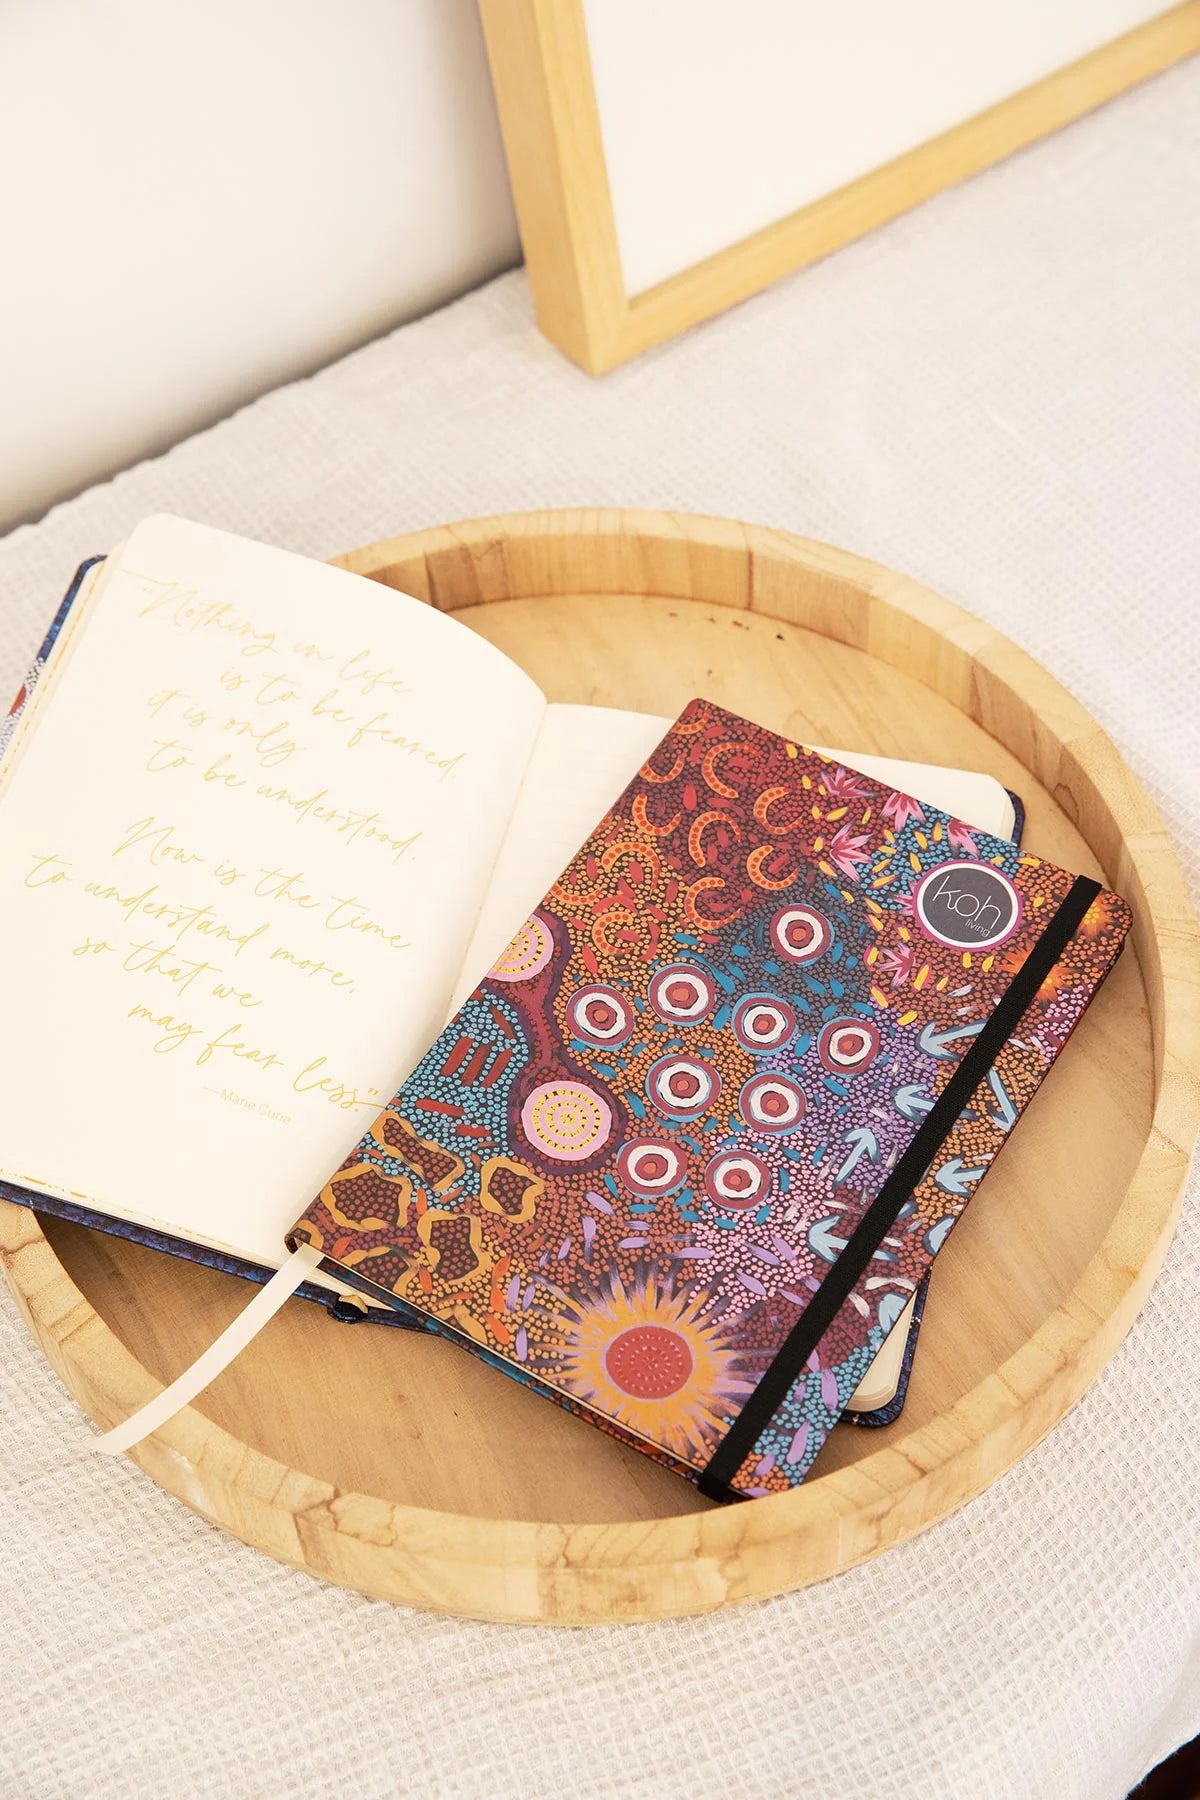 "Nothing in life
is to be feared,
it is only
to be understood.
Now is the time
to understand more,
so that we
may fear less."
—Marie Curie
koh
living